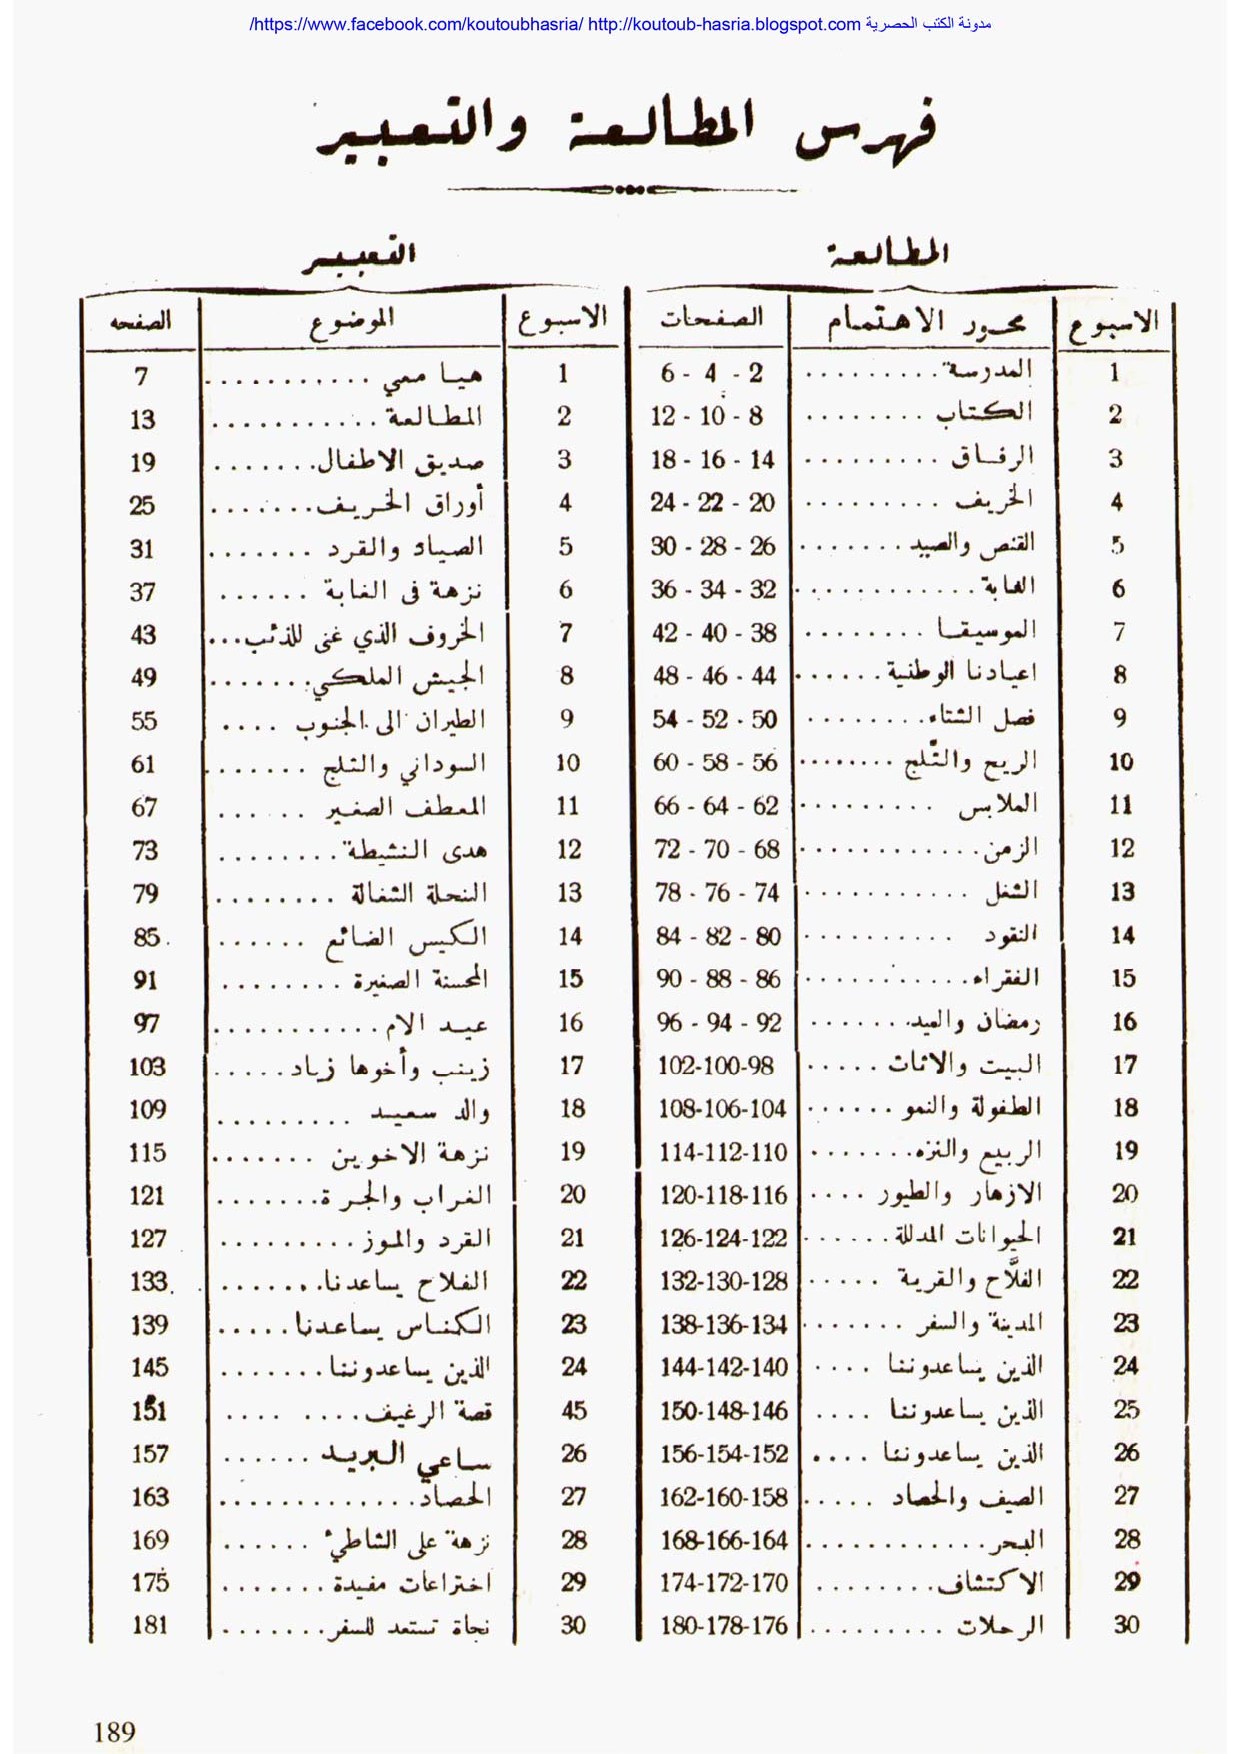 /https://www.facebook.com/koutoubhasria/ http://koutoub-hasria.blogspot.com مدونة الكتب الحصرية
فهرس المطالعة والتعبير
المطالعة التعبير
الاسبوع محور الاهتمام الصفحات الاسبوع الموضوع الصفحه
1 المدرسة ......... 2 - 4 - 6 1 هيا معي ........... 7
2 الكتاب ........ 8 - 10 - 12 2 المطالعة ........... 13
3 الرفاق ......... 14 - 16 - 18 3 صديق الاطفال ....... 19
4 الخريف ......... 20 - 22 - 24 4 أوراق الخريف ....... 25
5 القنص والصيد ....... 26 - 28 - 30 5 الصياد والقرد ....... 31
6 الغابة ............ 32 - 34 - 36 6 نزهة فى الغابة ...... 37
7 الموسيقا ........ 38 - 40 - 42 7 الخروف الذي غنى للذئب ... 43
8 اعيادنا الوطنية ...... 44 - 46 - 48 8 الجيش الملكي ....... 49
9 فصل الشتاء ........ 50 - 52 - 54 9 الطيران الى الجنوب .... 55
10 الريح والثّلج ........ 56 - 58 - 60 10 السوداني والثلج ....... 61
11 الملابس ......... 62 - 64 - 66 11 المعطف الصغير ...... 67
12 الزمن ............ 68 - 70 - 72 12 هدى النشيطة ........ 73
13 الشغل ........... 74 - 76 - 78 13 النحلة الشغالة ........ 79
14 النقود .......... 80 - 82 - 84 14 الكيس الضائع ...... 85
15 الفقراء ........... 86 - 88 - 90 15 المحسنة الصغيرة ........ 91
16 رمضان والعيد ....... 92 - 94 - 96 16 عيد الام ........... 97
17 البيت والاثاث ..... 98-100-102 17 زينب وأخوها زياد ..... 103
18 الطفولة والنمو ...... 104-106-108 18 والد سعيد ......... 109
19 الربيع والنزه ....... 110-112-114 19 نزهة الاخوين ....... 115
20 الازهار والطيور .... 116-118-120 20 الغراب والجرة ....... 121
21 الحيوانات المدللة ...... 122-124-126 21 القرد والموز ......... 127
22 الفلاّح والقرية ..... 128-130-132 22 الفلاح يساعدنا ....... 133
23 المدينة والسفر ....... 134-136-138 23 الكناس يساعدنا ..... 139
24 الذين يساعدوننا .... 140-142-144 24 الذين يساعدوننا ....... 145
25 الذين يساعدوننا .... 146-148-150 45 قصة الرغيف .... .... 151
26 الذين يساعدوننا .... 152-154-156 26 ساعي البريد ...... 157
27 الصيف والحصاد ..... 158-160-162 27 الحصاد ............. 163
28 البحر ............ 164-166-168 28 نزهة على الشاطئ ...... 169
29 الاكتشاف ......... 170-172-174 29 اختراعات مفيدة ....... 175
30 الرحلات ......... 176-178-180 30 نجاة تستعد للسفر ....... 181
189